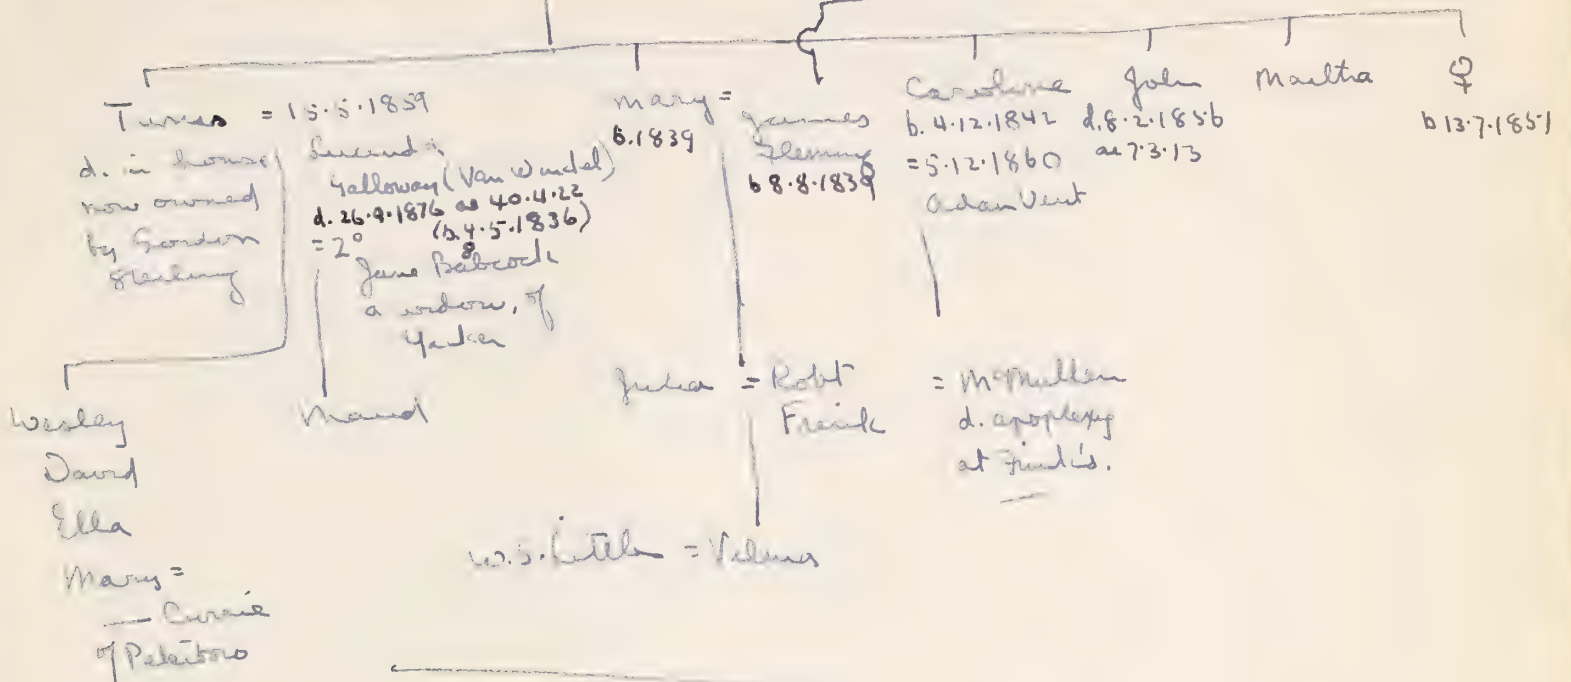 Tunis = 15.5.1859
d. in house
now owned
by Gordon
Lucinda
Galloway (Van Windel)
d. 26.9.1876 ae 40.4.22
(b. 4.5.1836)
8
= 2°
Jane Babcock
a widow, of
Yarker
Mary =
b. 1839
James
Fleming
b 8.8.1839
Caroline
b. 4.12.1842
= 5.12.1860
Adam Vent
John
d. 8.2.1856
ae 7.3.13
Martha
♀
b 13.7.1851
Wesley
David
Ella
Mary =
— Currie
of Peterboro
Maud
Julia = Robt
Frink
= McMullen
d. apoplexy
at Frink's.
W.S. Little = Velma